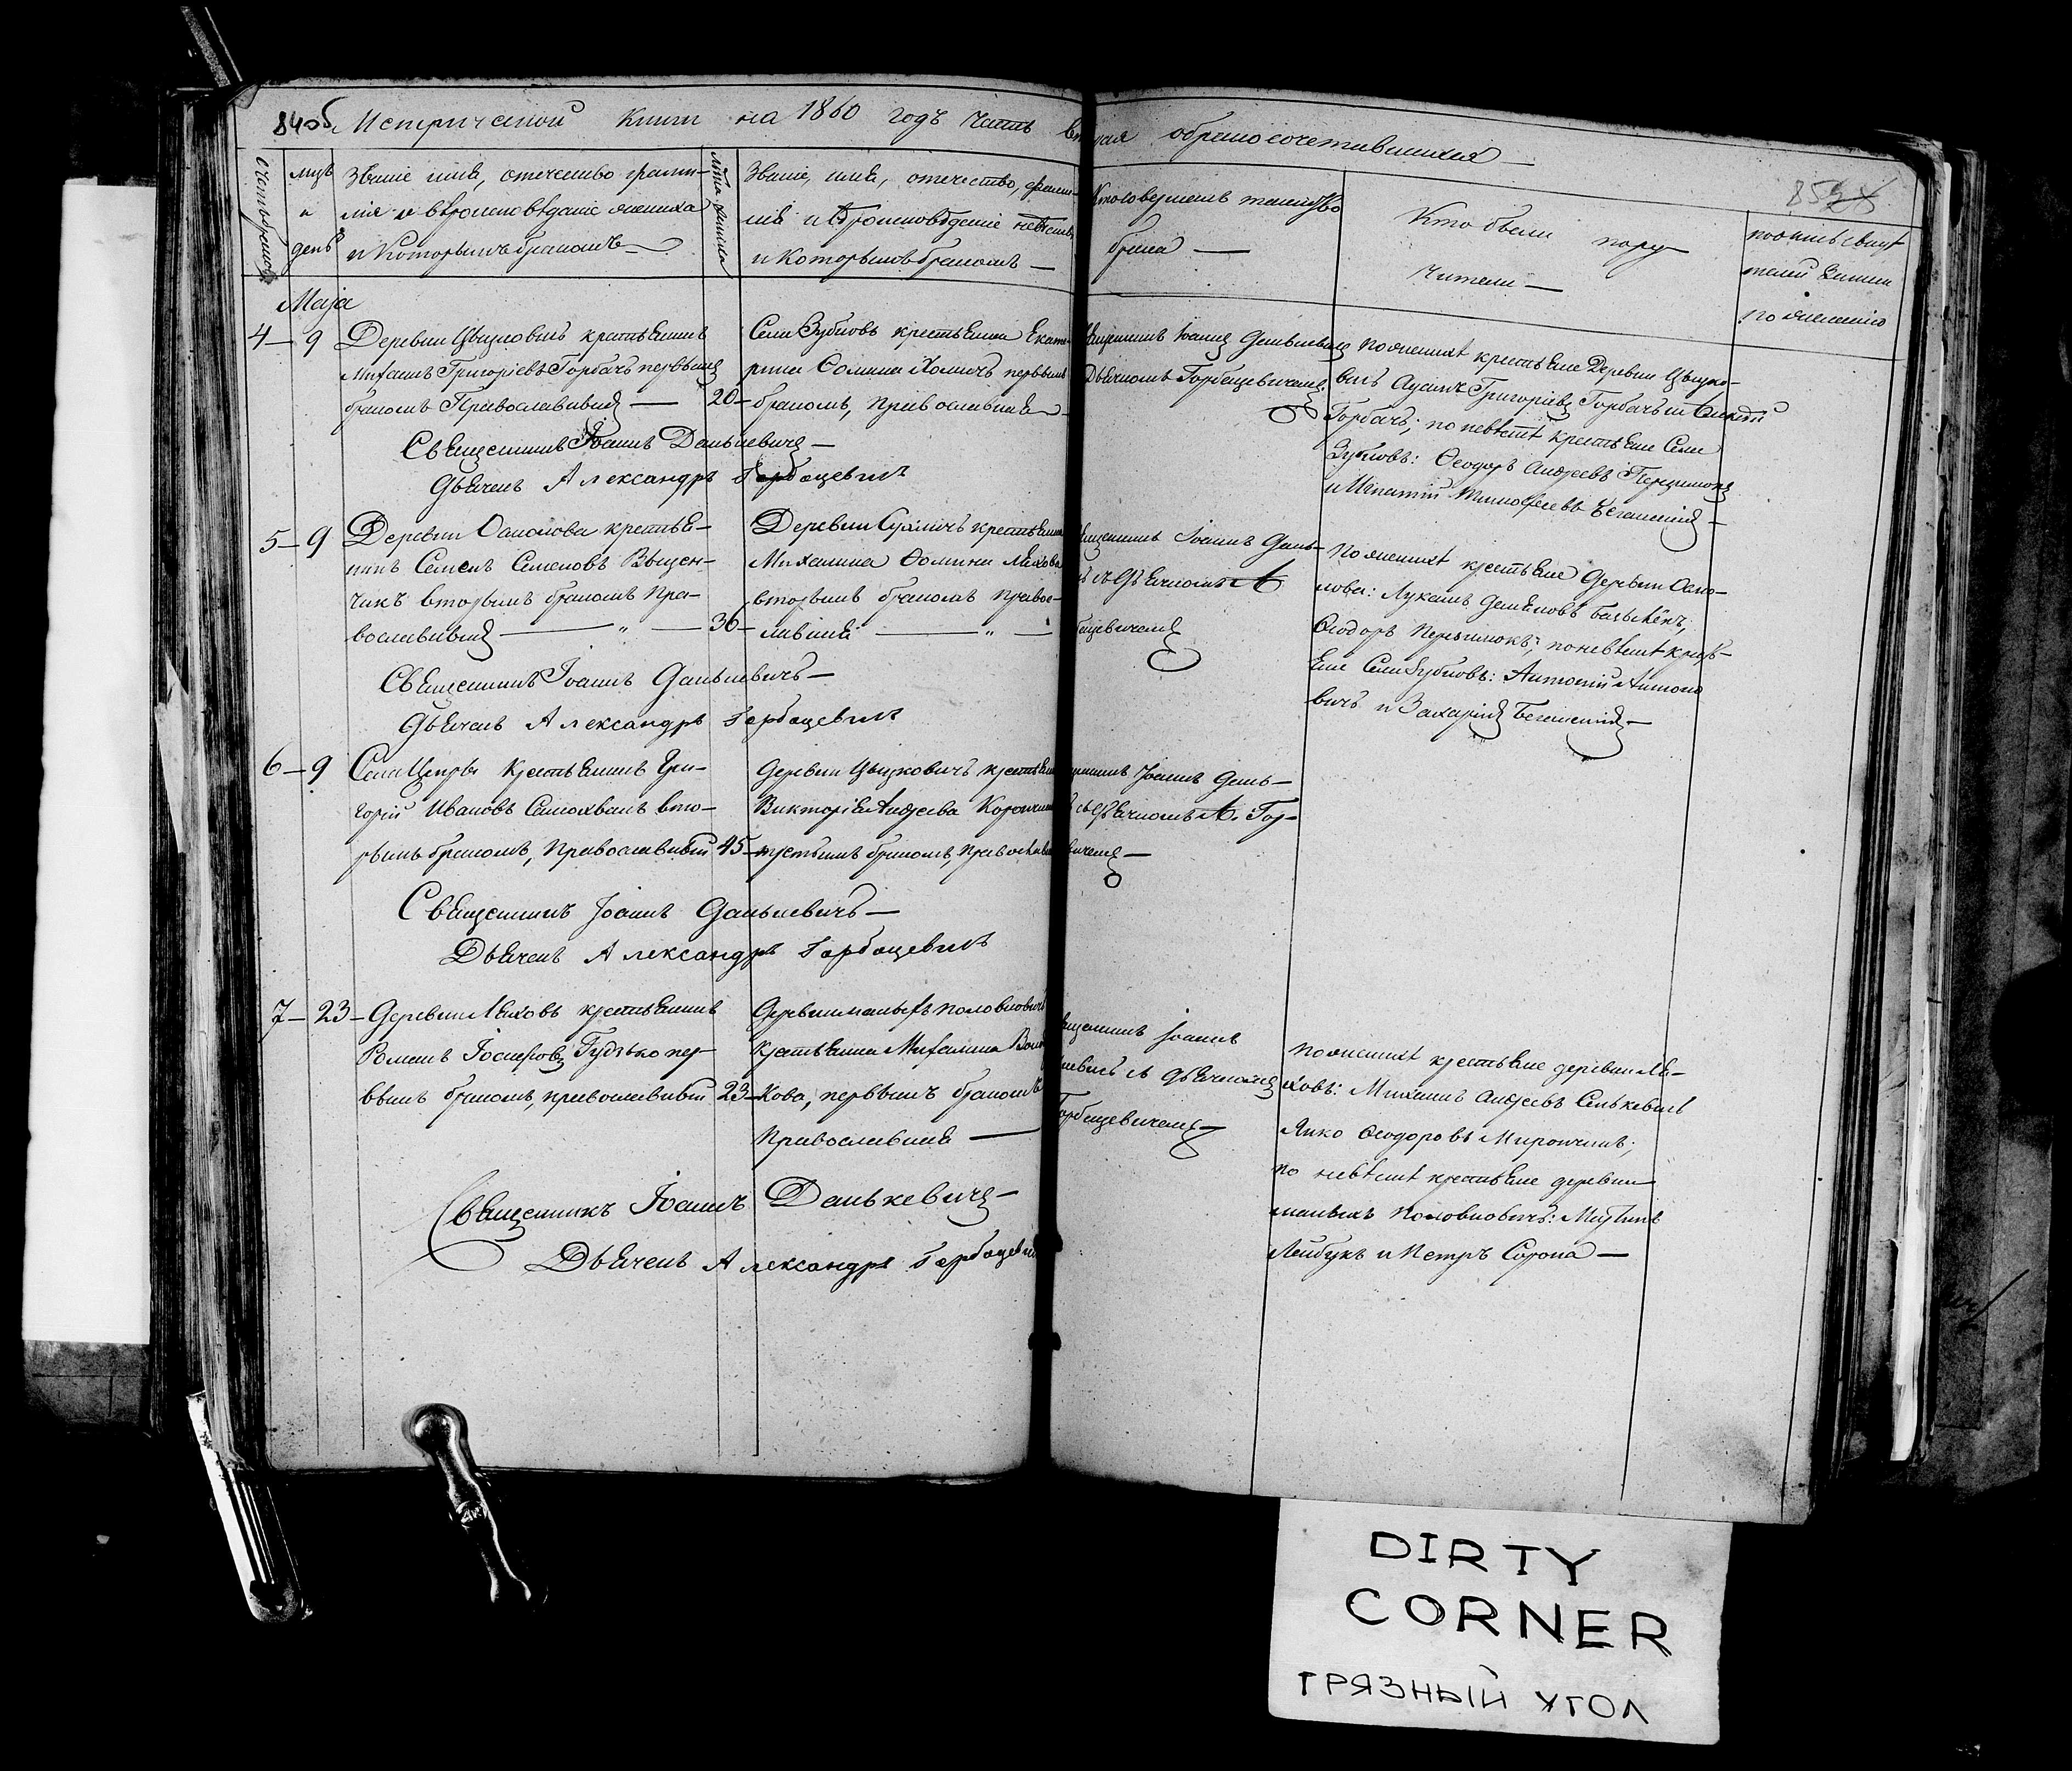 84об Метрической книги на 1860 годъ Часть вторая о бракосочетавшихся —
Счетъ браковъ
мцъ
и
день
Званіе имя, отечество фами-
лія и вѣроисповѣданіе жениха
и которымъ бракомъ —
Лѣта жениха
Званіе, имя, отечество, фами-
лія и вѣроисповѣданіе невѣсты
и которымъ бракомъ —
Кто совершалъ таинство
брака —
Кто были пору-
чители —
подпись свидѣ
телей записи
по желанію
85
Маја
4 — 9 Деревни Цыцковичъ крестьянинъ
Михаилъ Григоріевъ Горбачъ первымъ
бракомъ Православный — 20 —
Села Зубковъ крестьянка Екате-
рина Фомина Хомичъ первымъ
бракомъ, православная —
Священникъ Іоаннъ Данькевичъ
Дьячкомъ Горбацевичемъ
По женихѣ крестьяне Деревни Цыцко-
вичъ Адамъ Григоріевъ Горбачъ и Алексѣй
Горбачъ; по невѣстѣ крестьяне Села
Зубковъ: Ѳеодоръ Андреевъ
и Игнатій Тимоѳеевъ —
Священникъ Іоаннъ Данькевичъ —
Дьячекъ Александръ Горбацевичъ
5 — 9 Деревни Осмолова крестья-
нинъ Семенъ Семеновъ
вторымъ бракомъ Пра-
вославный — " — 36 —
Деревни крестьянка
Михалина Ѳомина
вторымъ бракомъ право-
славная — " —
Священникъ Іоаннъ Дань-
съ Дьячкомъ А
Горбацевичемъ
По женихѣ крестьяне Деревни Осмо-
лова: Лукашъ
Ѳеодоръ по невѣстѣ кресть-
яне Села Зубковъ: Антоній
и Захарій —
Священникъ Іоаннъ Данькевичъ —
Дьячекъ Александръ Горбацевичъ
6 — 9 Села Цепры Крестьянинъ Гри-
горій Ивановъ Самохвалъ вто-
рымъ бракомъ, Православный 45 —
Деревни Цыцковичъ крестьянка
Викторія Андреева
третьимъ бракомъ, православная
Священникъ Іоаннъ Дань-
съ Дьячкомъ А. Гор-
бацевичемъ —
Священникъ Іоаннъ Данькевичъ —
Дьячекъ Александръ Горбацевичъ
7 — 23 — Деревни Ляховъ крестьянинъ
Романъ Іосифовъ Гудзько пер-
вымъ бракомъ, православный 23 —
Деревни малыхъ Половковичъ
Крестьянка Михалина
первымъ бракомъ
Православная —
Священникъ Іоаннъ
съ Дьячкомъ
Горбацевичемъ —
По женихѣ крестьяне деревни Ля-
ховъ: Михаилъ Андреевъ Сенькевичъ
Янко Ѳеодоровъ Мирончикъ;
по невѣстѣ крестьяне деревни
малыхъ Половковичъ:
Лейбукъ и Петръ Сорока —
Священникъ Іоаннъ Данькевичъ —
Дьячекъ Александръ Горбацевичъ
DIRTY
CORNER
ГРЯЗНЫЙ УГОЛ